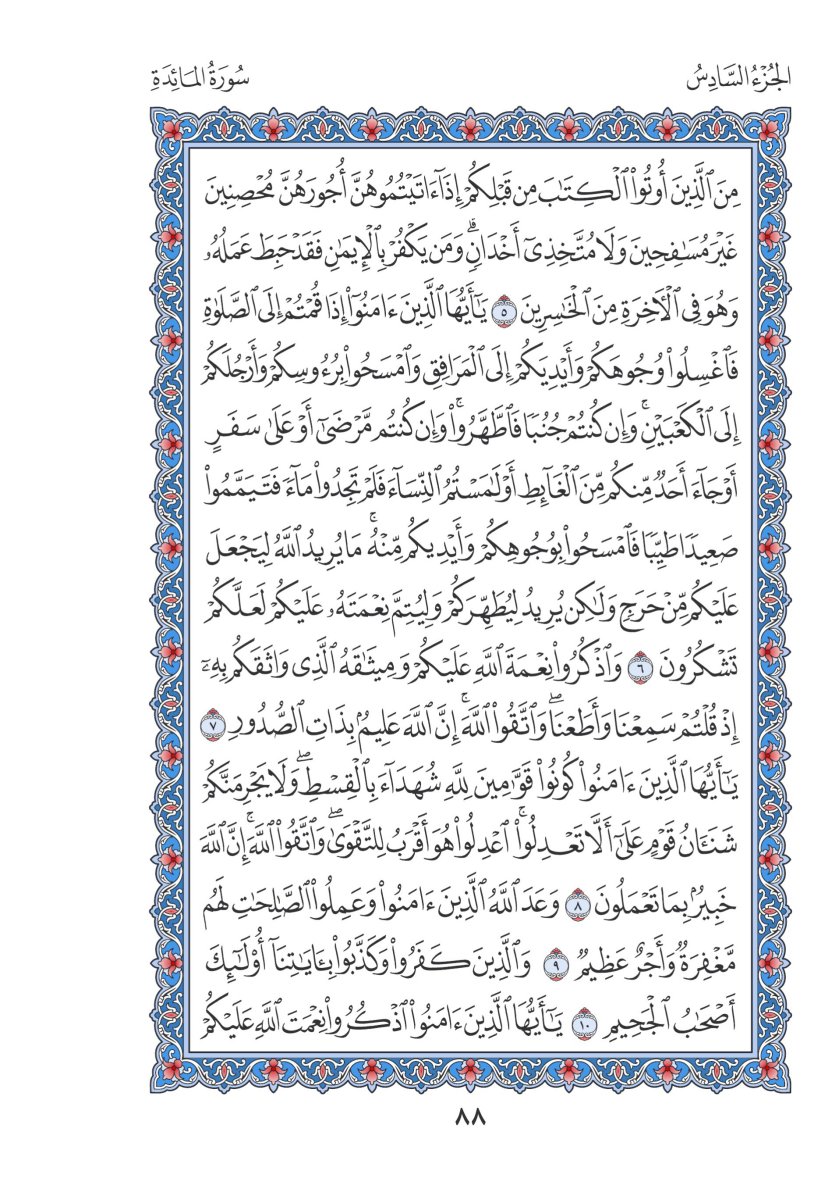 الجُزْءُ السَّادِسُ
سُورَةُ المَائِدَةِ
مِنَ ٱلَّذِينَ أُوتُوا۟ ٱلْكِتَـٰبَ مِن قَبْلِكُمْ إِذَآ ءَاتَيْتُمُوهُنَّ أُجُورَهُنَّ مُحْصِنِينَ
غَيْرَ مُسَـٰفِحِينَ وَلَا مُتَّخِذِىٓ أَخْدَانٍۗ وَمَن يَكْفُرْ بِٱلْإِيمَـٰنِ فَقَدْ حَبِطَ عَمَلُهُۥ
وَهُوَ فِى ٱلْـَٔاخِرَةِ مِنَ ٱلْخَـٰسِرِينَ ٥ يَـٰٓأَيُّهَا ٱلَّذِينَ ءَامَنُوٓا۟ إِذَا قُمْتُمْ إِلَى ٱلصَّلَوٰةِ
فَٱغْسِلُوا۟ وُجُوهَكُمْ وَأَيْدِيَكُمْ إِلَى ٱلْمَرَافِقِ وَٱمْسَحُوا۟ بِرُءُوسِكُمْ وَأَرْجُلَكُمْ
إِلَى ٱلْكَعْبَيْنِۚ وَإِن كُنتُمْ جُنُبًا فَٱطَّهَّرُوا۟ۚ وَإِن كُنتُم مَّرْضَىٰٓ أَوْ عَلَىٰ سَفَرٍ
أَوْ جَآءَ أَحَدٌ مِّنكُم مِّنَ ٱلْغَآئِطِ أَوْ لَـٰمَسْتُمُ ٱلنِّسَآءَ فَلَمْ تَجِدُوا۟ مَآءً فَتَيَمَّمُوا۟
صَعِيدًا طَيِّبًا فَٱمْسَحُوا۟ بِوُجُوهِكُمْ وَأَيْدِيكُم مِّنْهُۚ مَا يُرِيدُ ٱللَّهُ لِيَجْعَلَ
عَلَيْكُم مِّنْ حَرَجٍ وَلَـٰكِن يُرِيدُ لِيُطَهِّرَكُمْ وَلِيُتِمَّ نِعْمَتَهُۥ عَلَيْكُمْ لَعَلَّكُمْ
تَشْكُرُونَ ٦ وَٱذْكُرُوا۟ نِعْمَةَ ٱللَّهِ عَلَيْكُمْ وَمِيثَـٰقَهُ ٱلَّذِى وَاثَقَكُم بِهِۦٓ
إِذْ قُلْتُمْ سَمِعْنَا وَأَطَعْنَاۖ وَٱتَّقُوا۟ ٱللَّهَۚ إِنَّ ٱللَّهَ عَلِيمٌۢ بِذَاتِ ٱلصُّدُورِ ٧
يَـٰٓأَيُّهَا ٱلَّذِينَ ءَامَنُوا۟ كُونُوا۟ قَوَّٰمِينَ لِلَّهِ شُهَدَآءَ بِٱلْقِسْطِۖ وَلَا يَجْرِمَنَّكُمْ
شَنَـَٔانُ قَوْمٍ عَلَىٰٓ أَلَّا تَعْدِلُوا۟ۚ ٱعْدِلُوا۟ هُوَ أَقْرَبُ لِلتَّقْوَىٰۖ وَٱتَّقُوا۟ ٱللَّهَۚ إِنَّ ٱللَّهَ
خَبِيرٌۢ بِمَا تَعْمَلُونَ ٨ وَعَدَ ٱللَّهُ ٱلَّذِينَ ءَامَنُوا۟ وَعَمِلُوا۟ ٱلصَّـٰلِحَـٰتِ لَهُم
مَّغْفِرَةٌ وَأَجْرٌ عَظِيمٌ ٩ وَٱلَّذِينَ كَفَرُوا۟ وَكَذَّبُوا۟ بِـَٔايَـٰتِنَآ أُو۟لَـٰٓئِكَ
أَصْحَـٰبُ ٱلْجَحِيمِ ١٠ يَـٰٓأَيُّهَا ٱلَّذِينَ ءَامَنُوا۟ ٱذْكُرُوا۟ نِعْمَتَ ٱللَّهِ عَلَيْكُمْ
٨٨